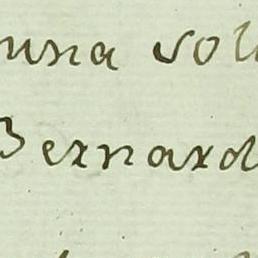 una sol
Bernard